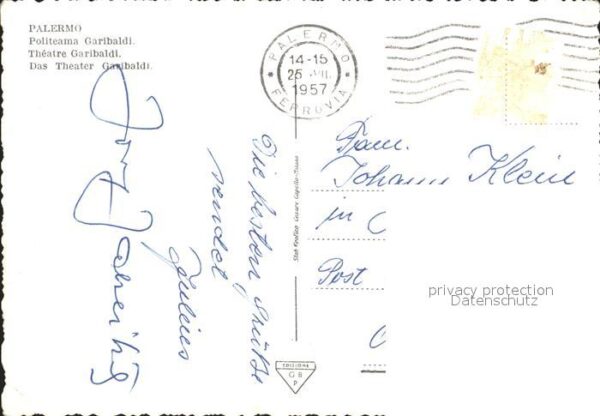 PALERMO
Politeama Garibaldi.
Théatre Garibaldi.
Das Theater Garibaldi.
PALERMO
14-15
25 VII.
1957
FERROVIA
Die besten Grüße
sendet
Julius
Fam.
Johann Klein
in
Post
privacy protection
Datenschutz
EDIZIONI
G B
P